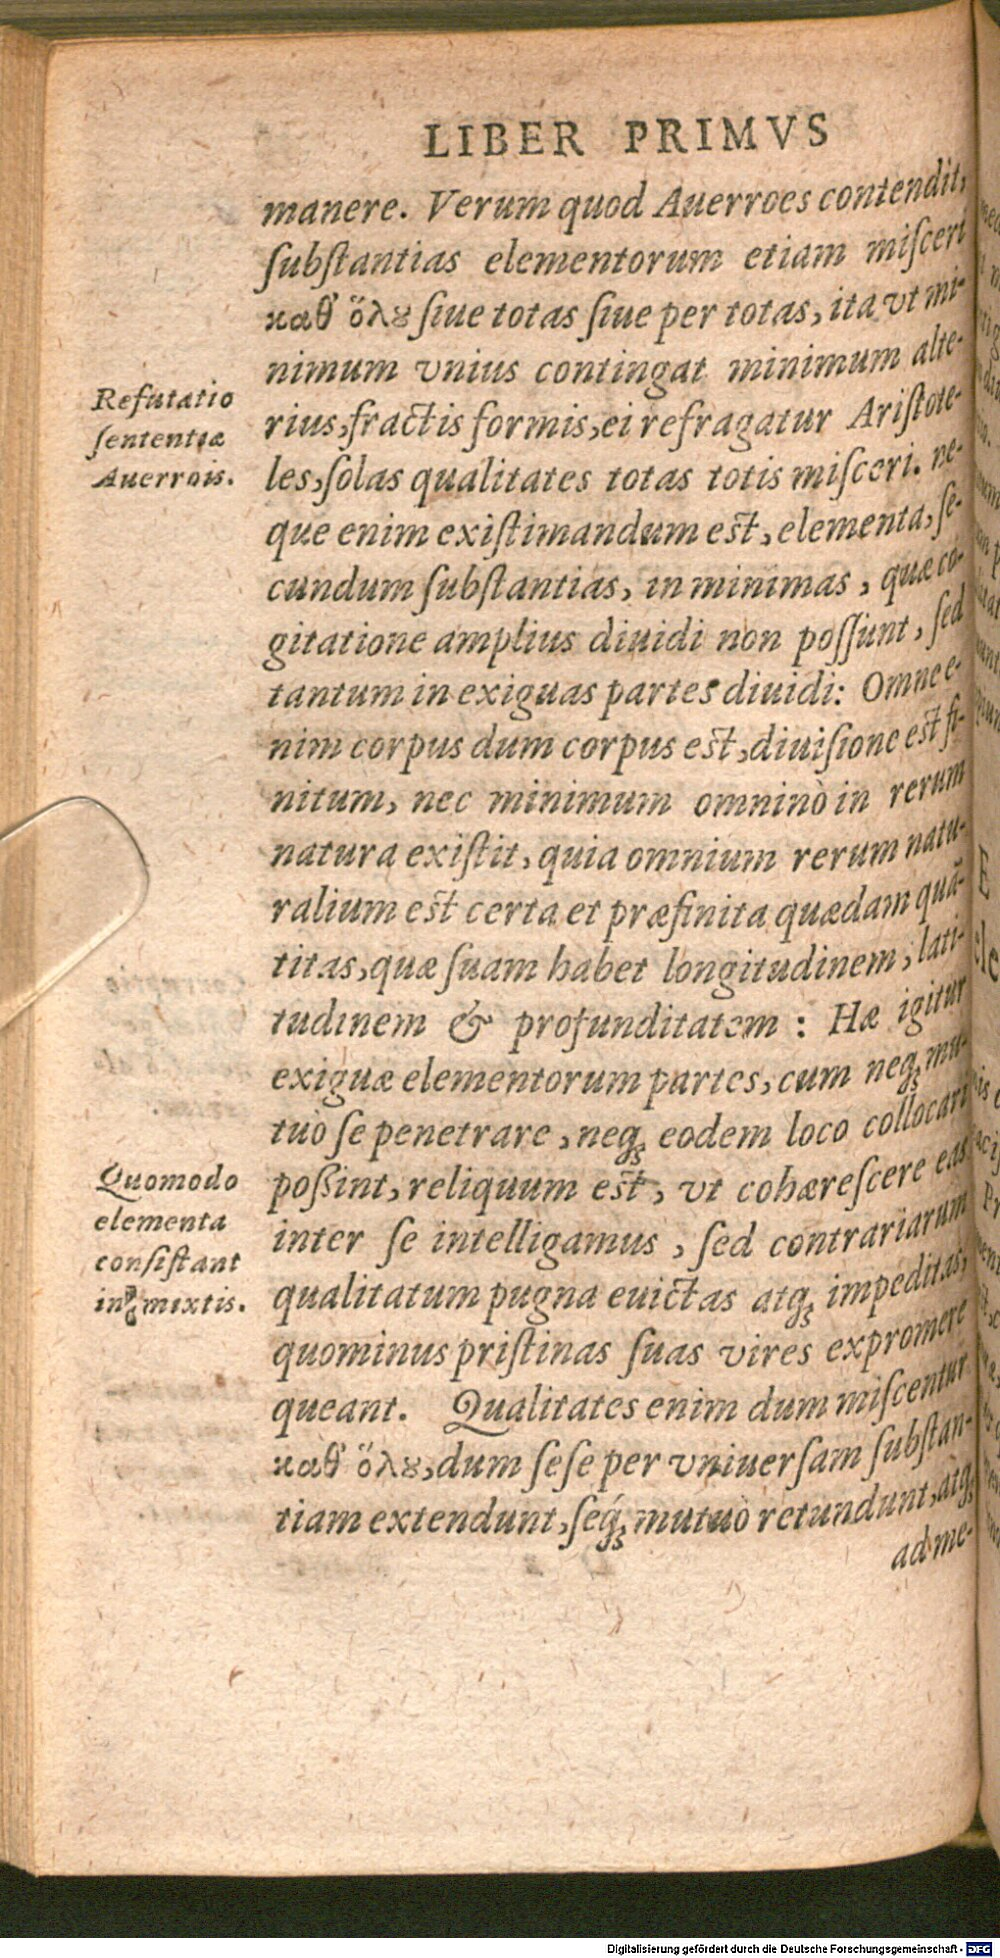 LIBER PRIMVS
manere. Verum quod Auerroes contendit,
ſubſtantias elementorum etiam miſceri
καθ' ὅλȣ ſiue totas ſiue per totas, ita vt mi-
nimum vnius contingat minimum alte-
rius, fractis formis, ei refragatur Ariſtote-
les, ſolas qualitates totas totis miſceri. ne-
que enim exiſtimandum eſt, elementa, ſe-
cundum ſubſtantias, in minimas, quæ co-
gitatione amplius diuidi non poſſunt, ſed
tantum in exiguas partes diuidi: Omne e-
nim corpus dum corpus eſt, diuiſione eſt fi-
nitum, nec minimum omninò in rerum
natura exiſtit, quia omnium rerum natu-
ralium eſt certa et præfinita quædam quā-
titas, quæ ſuam habet longitudinem, lati-
tudinem & profunditatem : Hæ igitur
exiguæ elementorum partes, cum neq; mu-
tuò ſe penetrare, neq; eodem loco collocari
poßint, reliquum eſt, vt cohæreſcere eas
inter ſe intelligamus, ſed contrariarum
qualitatum pugna euictas atq; impeditas,
quominus priſtinas ſuas vires expromere
queant. Qualitates enim dum miſcentur
καθ' ὅλȣ, dum ſeſe per vniuerſam ſubſtan-
tiam extendunt, ſeq́; mutuò retundunt, atq;
ad me-
Refutatio
ſententiæ
Auerrois.
Quomodo
elementa
conſiſtant
in mixtis.
Digitalisierung gefördert durch die Deutsche Forschungsgemeinschaft - DFG